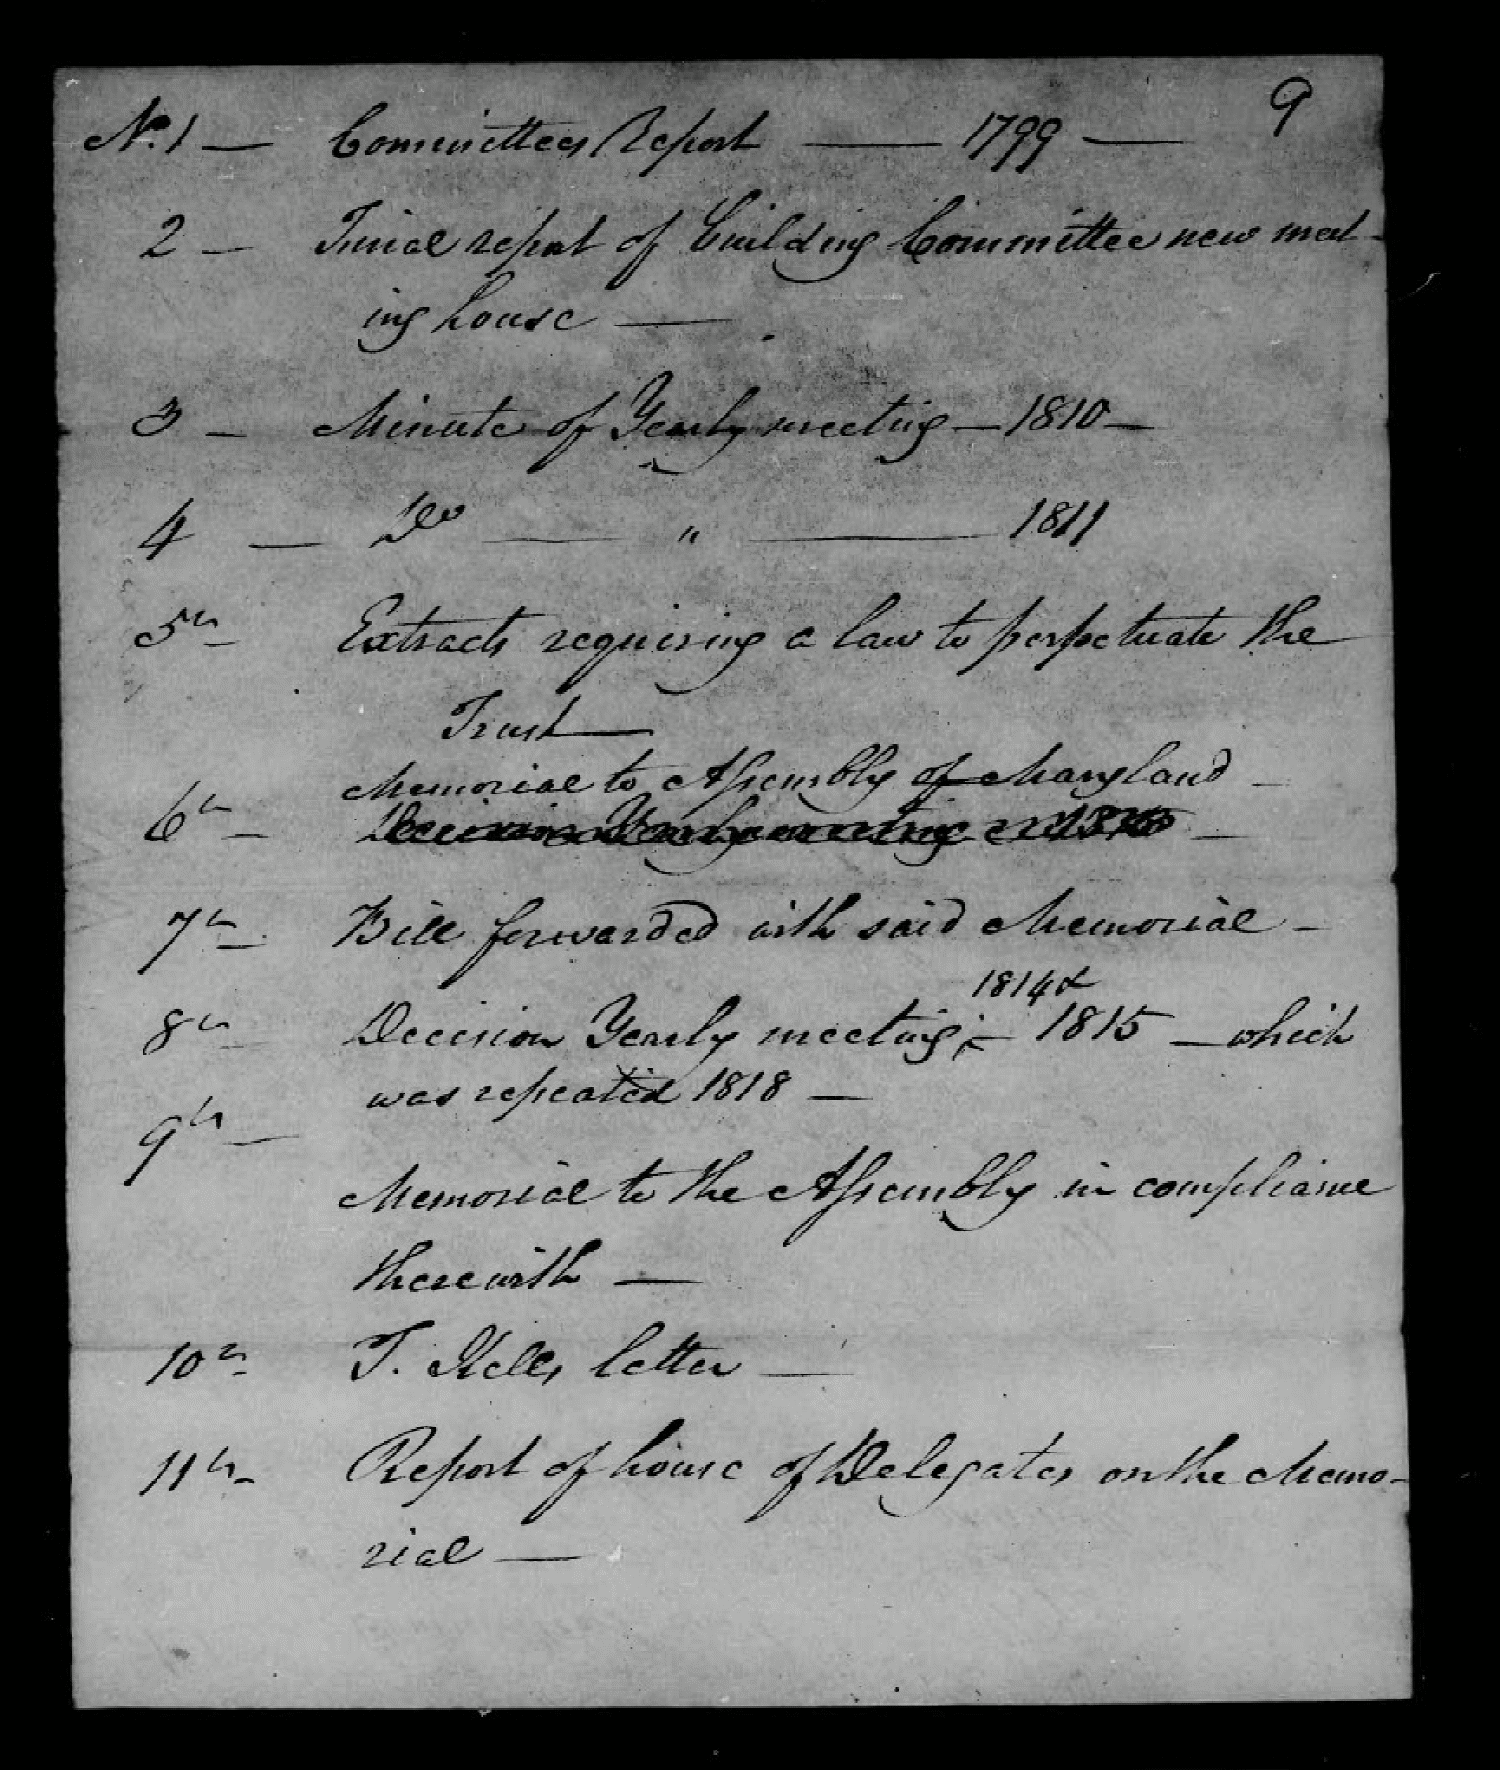 9
No. 1 — Committees Report — 1799 —
2 — Finial report of building Committee new meet-
ing house —
3 — Minute of Yearly meeting — 1810 —
4 — Do — " — 1811
5th — Extracts requiring a law to perpetuate the
Trust —
Memorial to Assembly of Maryland —
6th — Decision Yearly meeting —
7th — Bill forwarded with said Memorial —
1814 &
8th — Decision Yearly meeting — 1815 — which
was repeated 1818 —
9th —
Memorial to the Assembly in compliance
therewith —
10th T. Kells letter —
11th — Report of house of Delegates on the Memo-
rial —